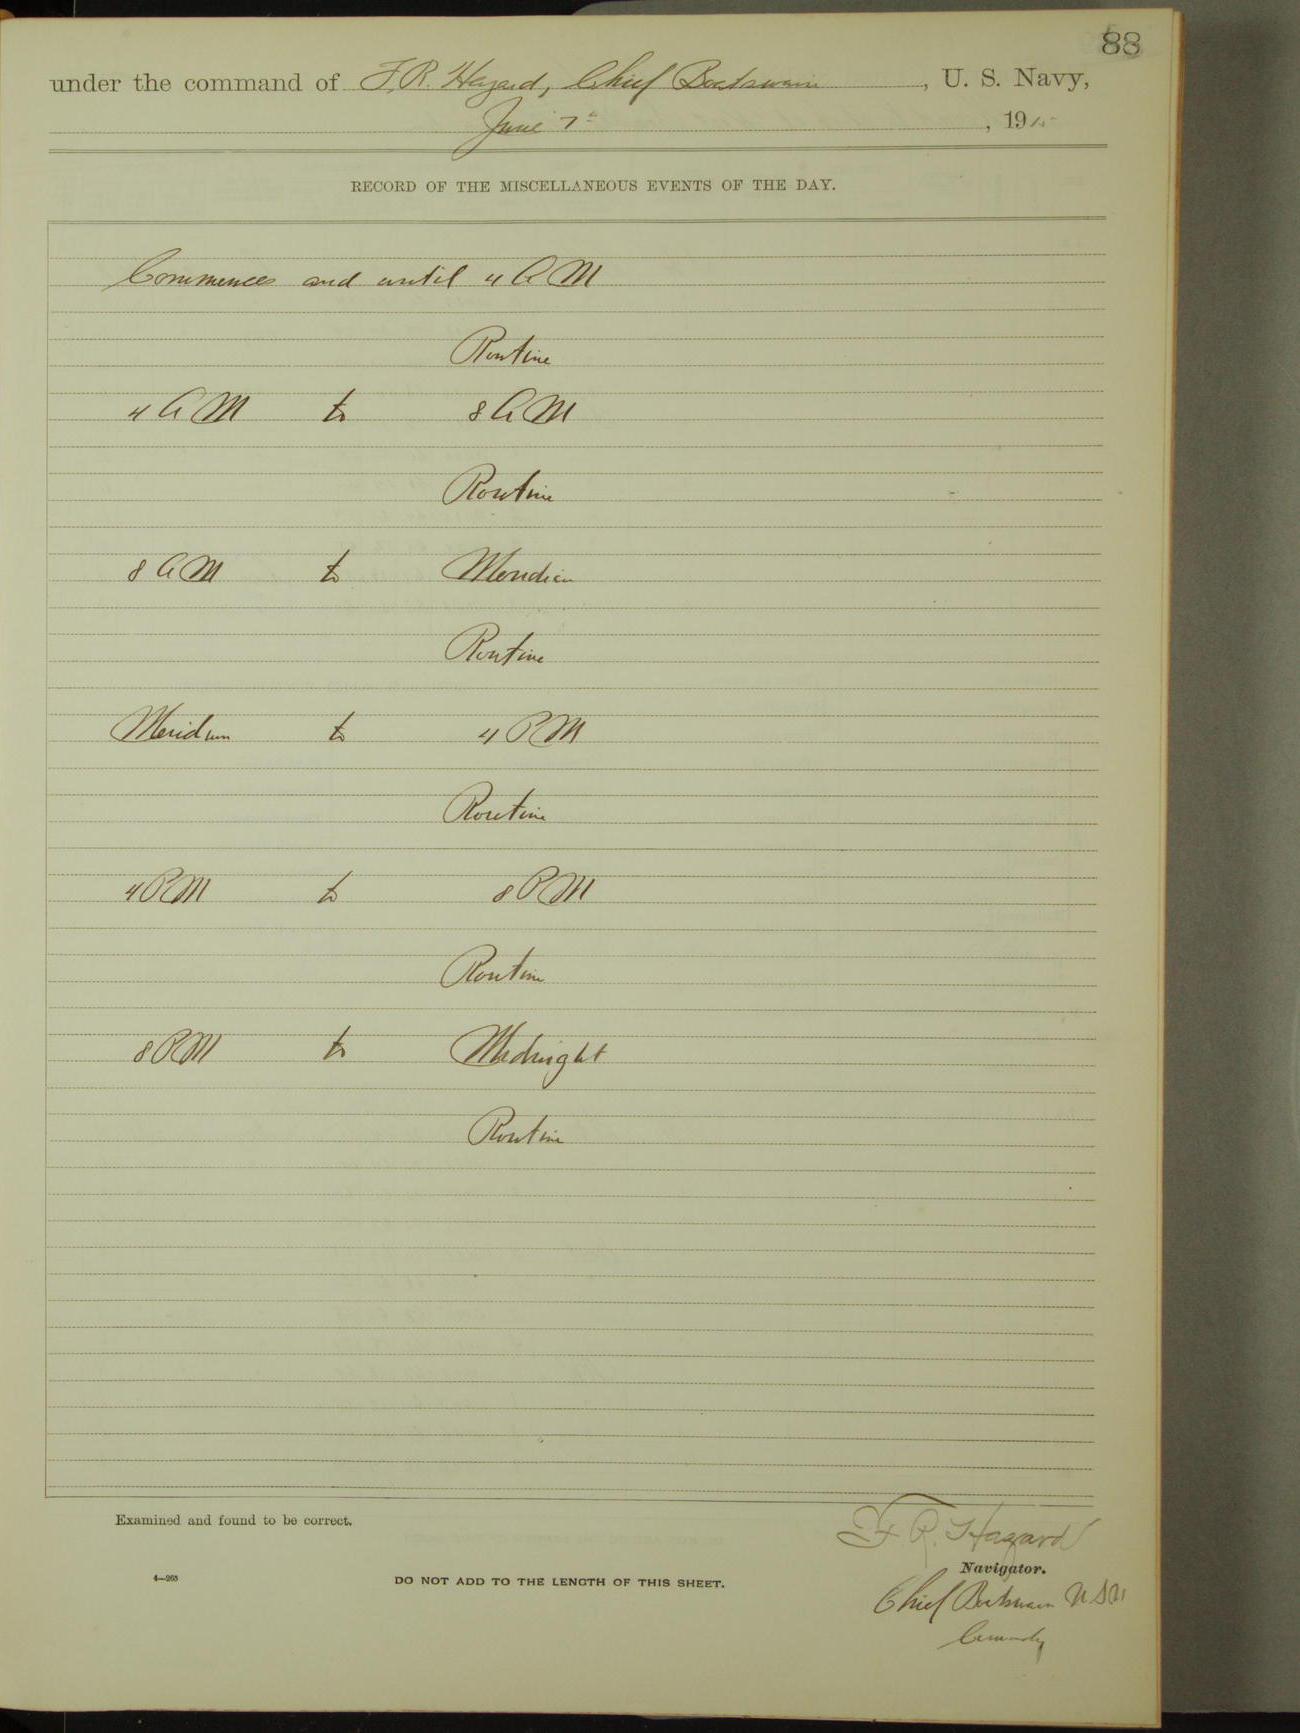 88
under the command of F. R. Hazard, Chief Boatswain, U. S. Navy,
June 7th, 1915
RECORD OF THE MISCELLANEOUS EVENTS OF THE DAY.
Commences and until 4 AM
Routine
4 AM to 8 AM
Routine
8 AM to Meridian
Routine
Meridian to 4 PM
Routine
4 PM to 8 PM
Routine
8 PM to Midnight
Routine
Examined and found to be correct.
F. R. Hazard
Navigator.
4—263
DO NOT ADD TO THE LENGTH OF THIS SHEET.
Chief Boatswain U S N